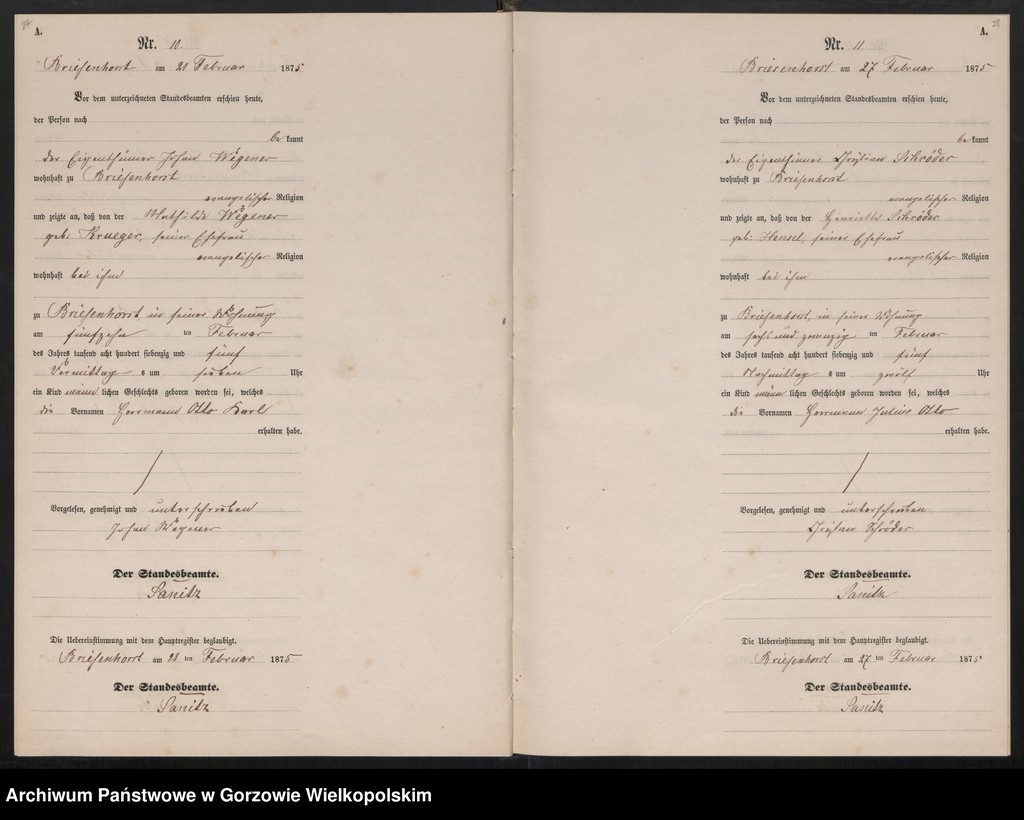 A.
Nr. 10.
Briesenhorst am 20 Februar 1875
Vor dem unterzeichneten Standesbeamten erschien heute,
der Person nach
bekannt
der Eigenthümer Johan Wegener
wohnhaft zu Briesenhorst
evangelischer Religion
und zeigte an, daß von der Mathilde Wegener
geb: Krueger, seiner Ehefrau
evangelischer Religion
wohnhaft bei ihm
zu Briesenhorst in seiner Wohnung
am fünfzehn ten Februar
des Jahres tausend acht hundert siebenzig und fünf
Vormittag s um sieben Uhr
ein Kind männ lichen Geschlechts geboren worden sei, welches
die Vornamen Herrmann Otto Karl
erhalten habe.
Vorgelesen, genehmigt und unterschrieben
Johan Wegener
Der Standesbeamte.
Sanitz
Die Uebereinstimmung mit dem Hauptregister beglaubigt.
Briesenhorst am 20 ten Februar 1875
Der Standesbeamte.
Sanitz
A.
Nr. 11
Briesenhorst am 27 Februar 1875
Vor dem unterzeichneten Standesbeamten erschien heute,
der Person nach
bekannt
der Eigenthümer Schröder
wohnhaft zu Briesenhorst
evangelischer Religion
und zeigte an, daß von der Henriette Schröder
geb: Hensel, seiner Ehefrau
evangelischer Religion
wohnhaft bei ihm
zu Briesenhorst, in seiner Wohnung
am sechs und zwanzig ten Februar
des Jahres tausend acht hundert siebenzig und fünf
Nachmittag s um zwölf Uhr
ein Kind männ lichen Geschlechts geboren worden sei, welches
die Vornamen Herrmann Julius Otto
erhalten habe.
Vorgelesen, genehmigt und unterschrieben
Schröder
Der Standesbeamte.
Sanitz
Die Uebereinstimmung mit dem Hauptregister beglaubigt.
Briesenhorst am 27 ten Februar 1875
Der Standesbeamte.
Sanitz
Archiwum Państwowe w Gorzowie Wielkopolskim